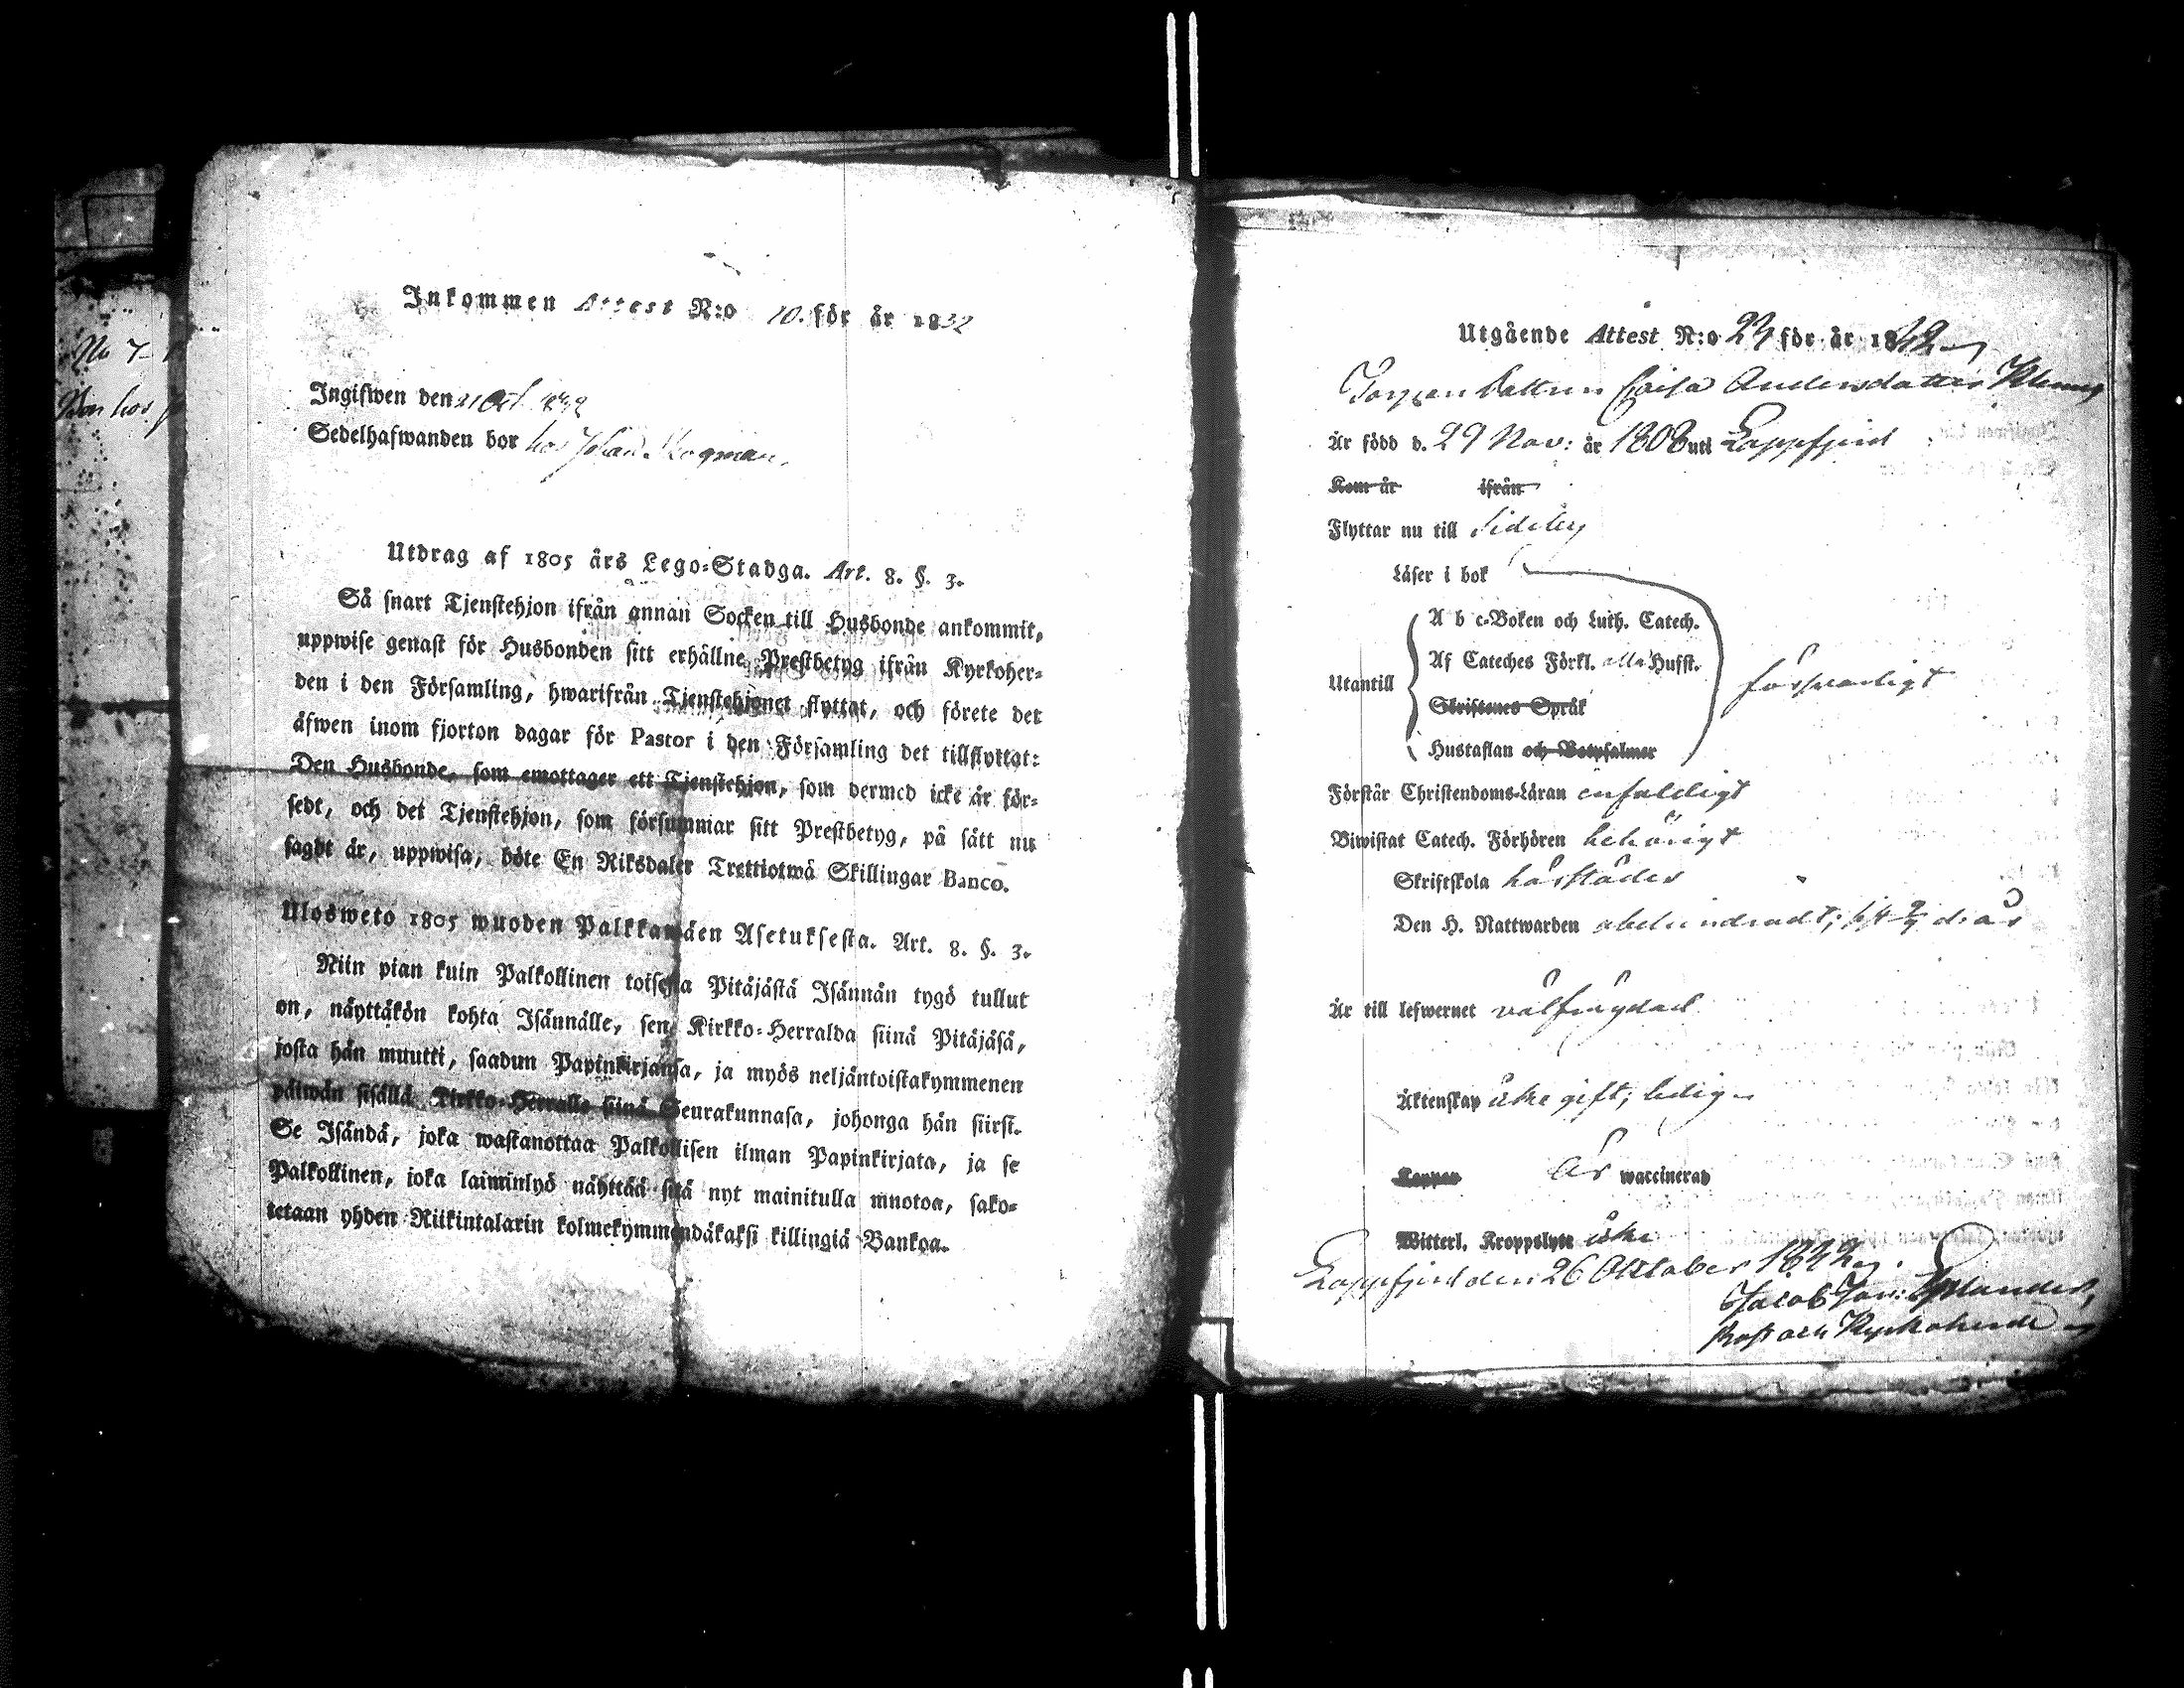 No 7
Bor hos
Inkommen Attest N:o 10. för år 1832
Ingifwen den 31 Oct. 1842
Sedelhafwanden bor hos Johan Skogman.
Utdrag af 1805 års Lego-Stadga. Art. 8. §. 3.
Så snart Tjenstehjon ifrån annan Socken till Husbonde ankommit,
uppwise genast för Husbonden sitt erhållne Prestbetyg ifrån Kyrkoher-
den i den Församling, hwarifrån Tjenstehjonet flyttat, och förete det
äfwen inom fjorton dagar för Pastor i den Församling det tillflyttat:
Den Husbonde, som emottager ett Tjenstehjon, som dermed icke är för-
sedt, och det Tjenstehjon, som försummar sitt Prestbetyg, på sätt nu
sagdt är, uppwisa, böte En Riksdaler Trettiotwå Skillingar Banco.
Ulosweto 1805 wuoden Palkkawäen Asetuksesta. Art. 8. §. 3.
Niin pian kuin Palkollinen toisesta Pitäjästä Isännän tygö tullut
on, näyttäkön kohta Isännälle, sen Kirkko-Herralda siinä Pitäjäsä,
josta hän muutti, saadun Papinkirjansa, ja myös neljäntoistakymmenen
päiwän sisällä Kirkko-Herralle siinä Seurakunnasa, johonga hän siirst.
Se Isändä, joka wastanottaa Palkollisen ilman Papinkirjata, ja se
Palkollinen, joka laiminlyö nähttää sitä nyt mainitulla muotoa, sako-
tetaan yhden Riikintalarin kolmekymmendäkaksi killingiä Bankoa.
Utgående Attest N:o 24 för år 1842
Torpardottren Caisa Andersdotter Klemets
Är född d. 29 Nov: år 1808 uti Lappfjerd
Kom år ifrån
Flyttar nu till Sideby
Läser i bok
Utantill
A b c-Boken och Luth. Catech.
Af Cateches Förkl. alla Hufst.
Skriftenes Språk
Hustaflan och Botpsalmer
försvarligt
Förstår Christendoms-Läran enfaldigt
Biwistat Catech. Förhören behörigt
Skriftskola härstädes
Den H. Nattwarden obehindradt;
Är till lefwernet välfrägdad
Äktenskap icke gift; ledig
Koppor Är waccinerad
Witterl. Kroppslyte icke
Lappfjerd den 26 Oktober 1842
Jacob Jon:
Prost och Kyrkoherde